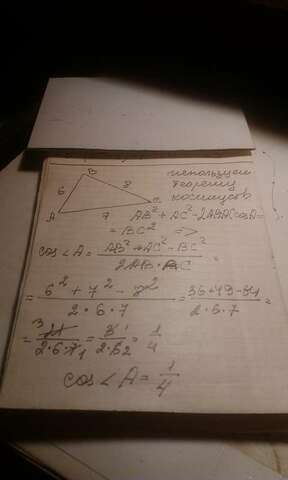 B
используем
6 8 теорему
A 7 C косинусов
AB² + AC² - 2AB·AC cosA =
= BC² =>
cos∠A = AB² + AC² - BC² / 2AB·AC =
= 6² + 7² - 8² / 2·6·7 = 36+49-64 / 2·6·7 =
= 21 3 / 2·6·7 1 = 3 1 / 2·6 2 = 1/4
cos∠A = 1/4